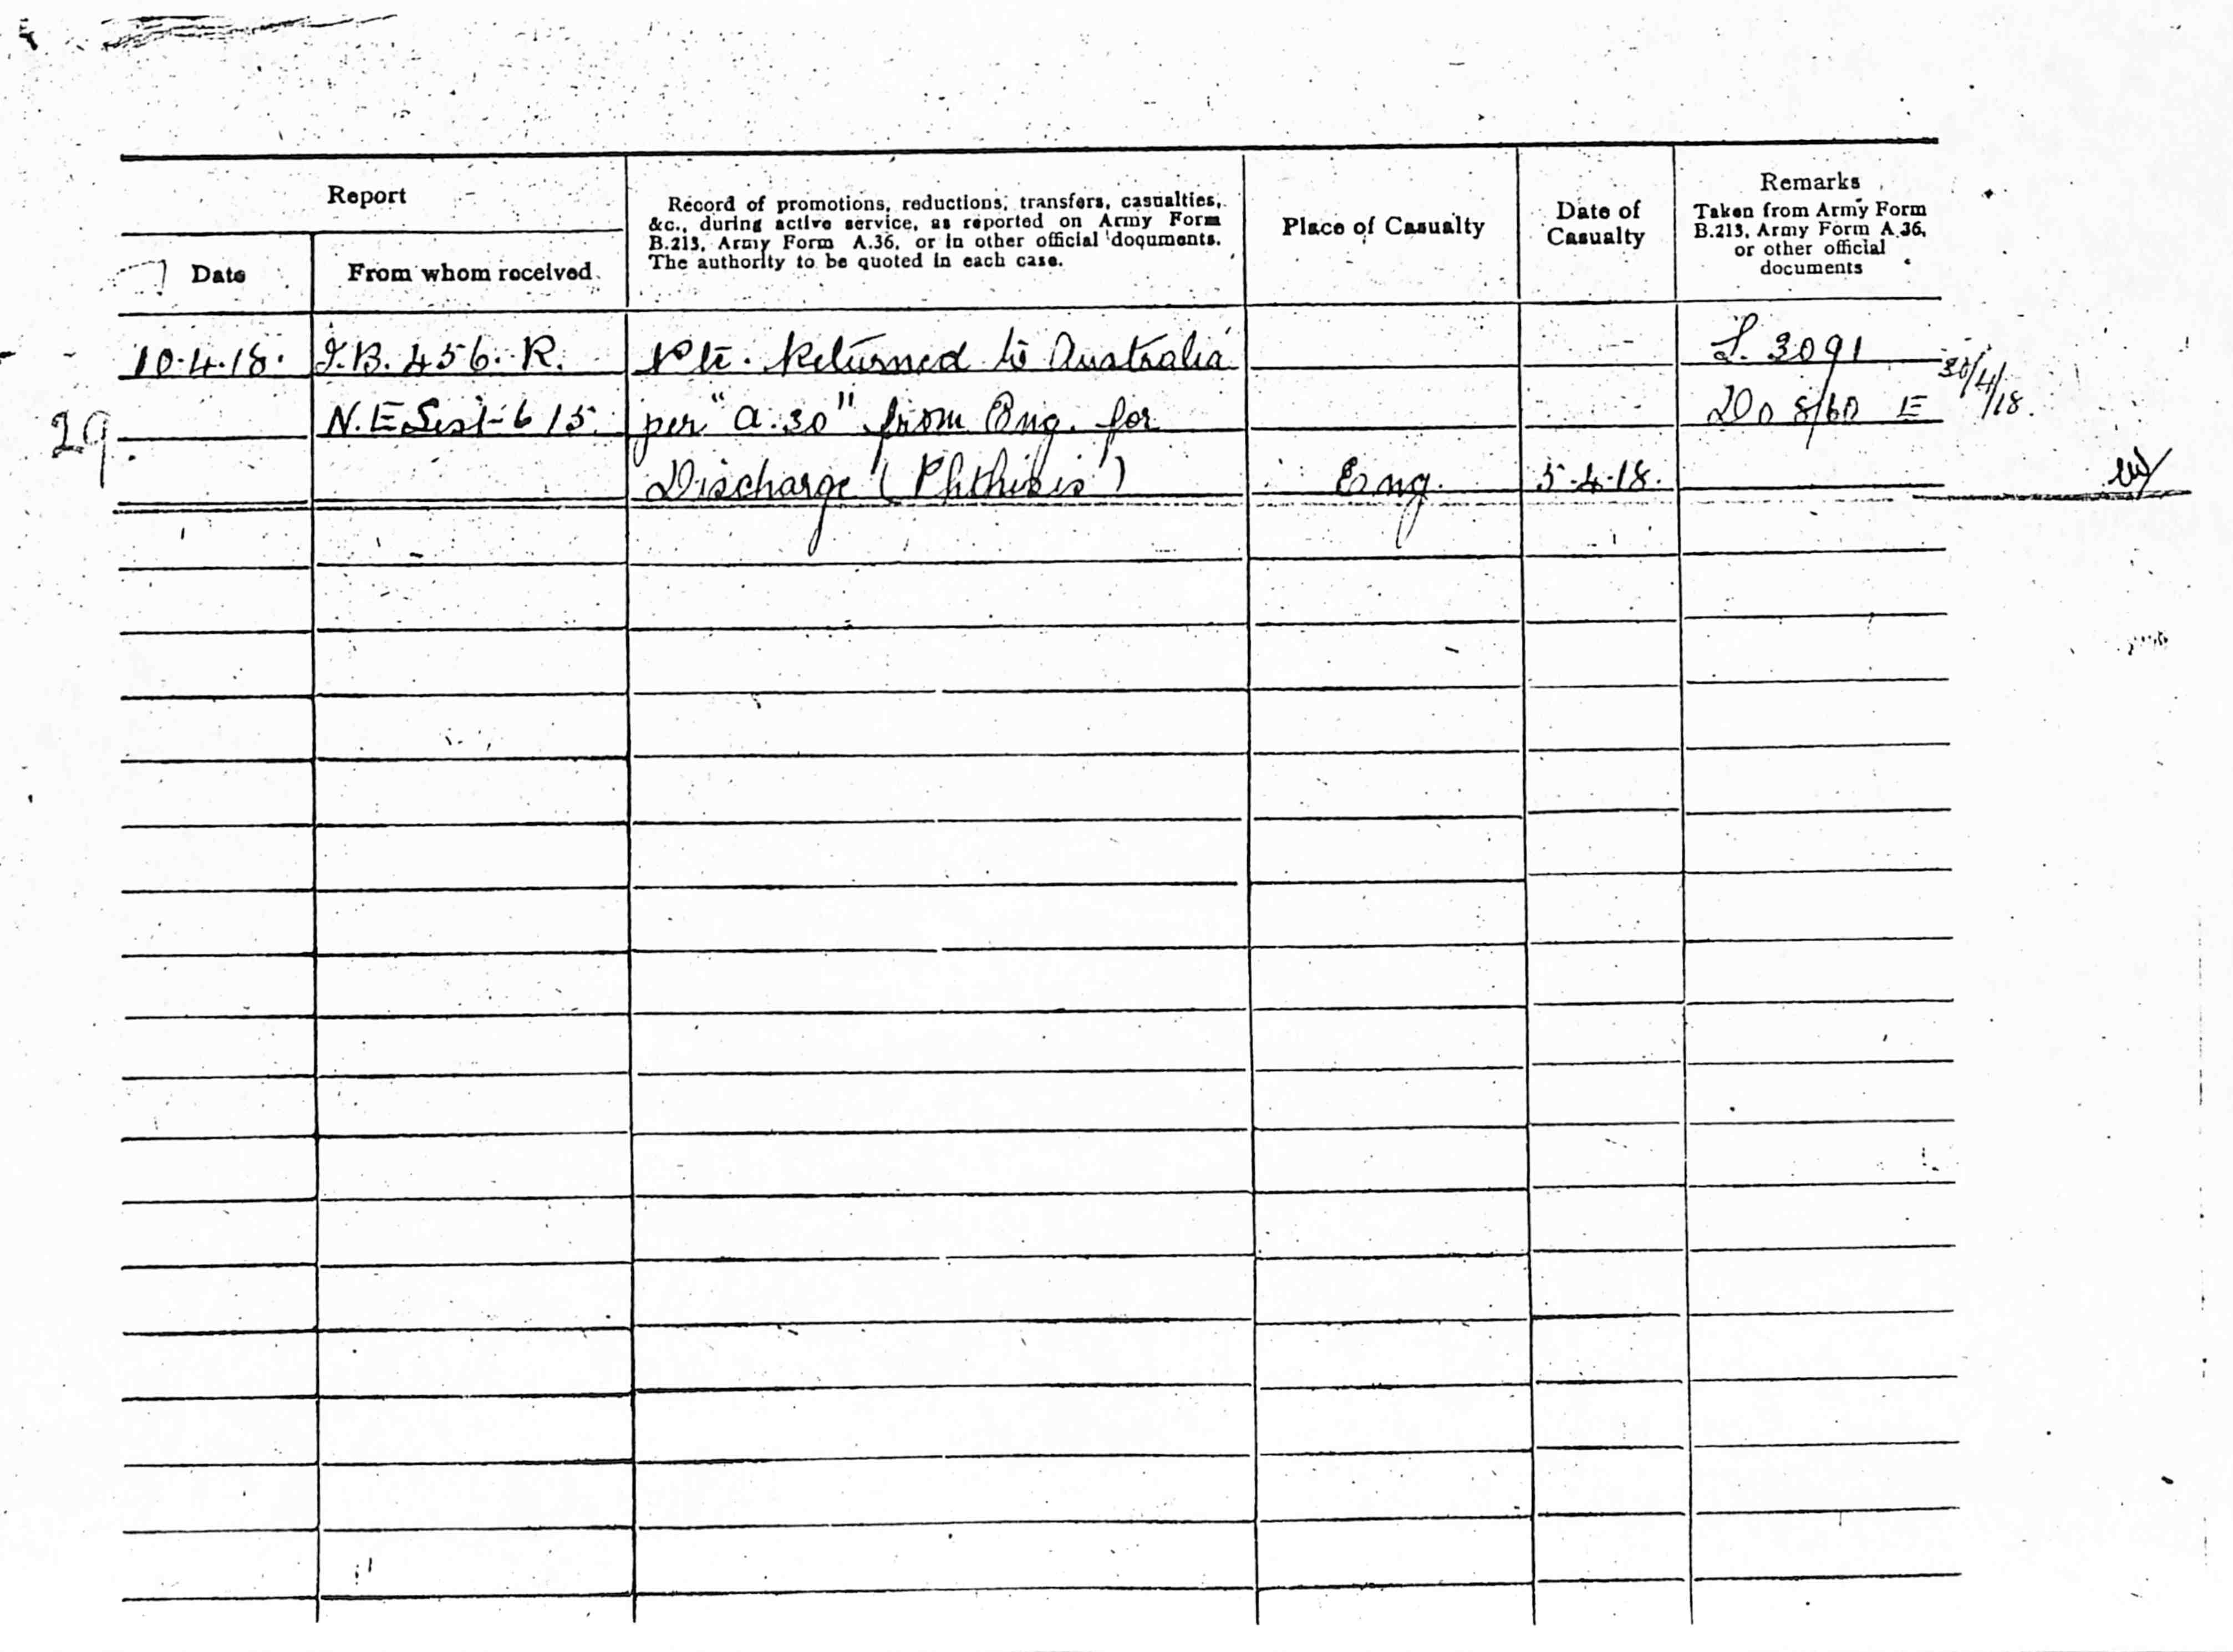 Report
Date
From whom received.
Record of promotions, reductions, transfers, casualties,
&c., during active service, as reported on Army Form
B.213, Army Form A.36, or in other official documents.
The authority to be quoted in each case.
Place of Casualty
Date of
Casualty
Remarks
Taken from Army Form
B.213, Army Form A.36,
or other official
documents
10.4.18. 456. R. Pte. Returned to Australia L. 3091 30/4/18.
29. N.E. 615. per "A.30" from Eng. for Do 8/60 E
Discharge (Phthisis) Eng. 5.4.18.